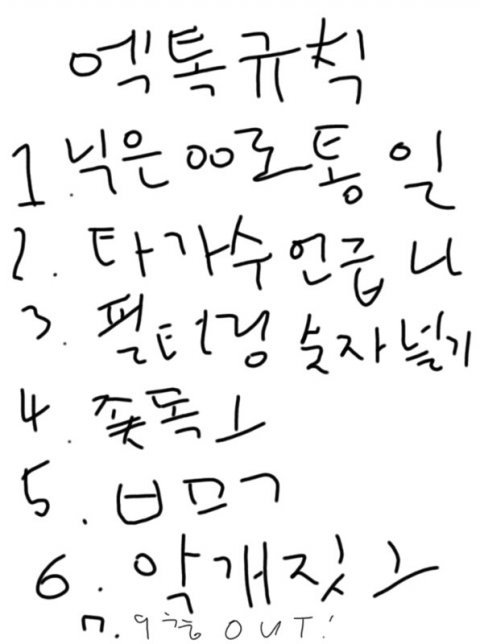 엑톡규칙
1.닉은 00로통일
2. 타가수언급 ㄴ
3. 필터링 숫자널기
4. 쫓독ㅗ
5. ㅂㅁㄱ
6. 악개짓ㅗ
7. 9층 OUT!